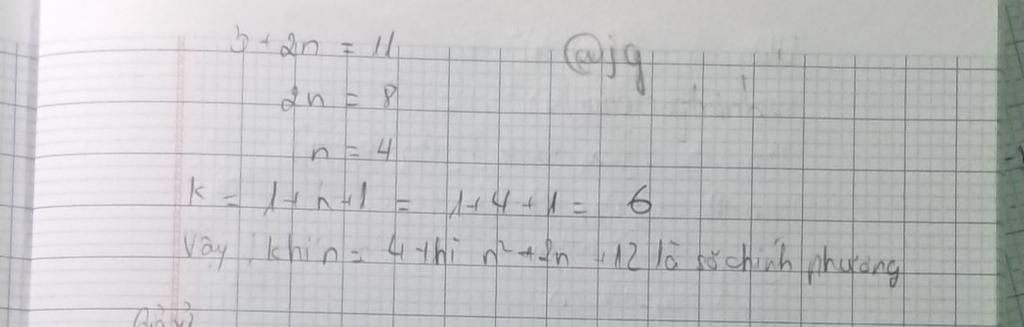 3 + 2n = 11
@jq
2n = 8
n = 4
k = 1 + n + 1 = 1 + 4 + 1 = 6
Vậy, khi n = 4 thì n² + 2n + 12 là số chính phương